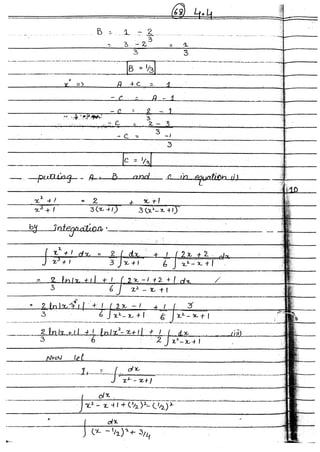 68 4.4
B = 1 - 2/3
= 3 - 2 / 3 = 1/3
B = 1/3
x° => A + C = 1
- C = A - 1
- C = 2/3 - 1
- C = 2 - 3 / 3
- C = -1/3
C = 1/3
putting A, B and C in equation (i)
x² + 1 / x³ + 1 = 2 / 3(x+1) + x+1 / 3(x²-x+1)
by Integration
∫ x²+1 / x³+1 dx = 2/3 ∫ dx / x+1 + 1/6 ∫ 2x+2 / x²-x+1 dx
= 2/3 ln|x+1| + 1/6 ∫ 2x-1+2+1 / x²-x+1 dx
= 2/3 ln|x+1| + 1/6 ∫ 2x-1 / x²-x+1 + 1/6 ∫ 3 / x²-x+1
2/3 ln|x+1| + 1/6 ln|x²-x+1| + 1/2 ∫ dx / x²-x+1 (ii)
Now let
I₁ = ∫ dx / x²-x+1
∫ dx / x²-x+1+(1/2)²-(1/2)²
∫ dx / (x-1/2)²+3/4